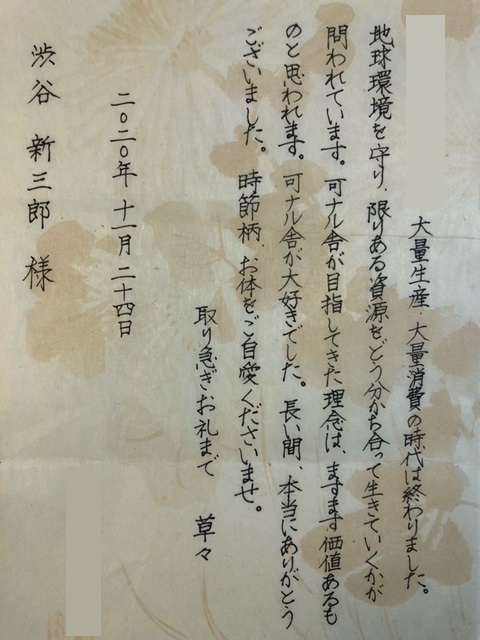 大量生産・大量消費の時代は終わりました。
地球環境を守り、限りある資源をどう分かち合って生きていくかが
問われています。可ナル舎が目指してきた理念は、ますます価値あるも
のと思われます。可ナル舎が大好きでした。長い間、本当にありがとう
ございました。時節柄、お体をご自愛くださいませ。
取り急ぎお礼まで 草々
二〇二〇年 十一月 二十四日
渋谷 新三郎 様